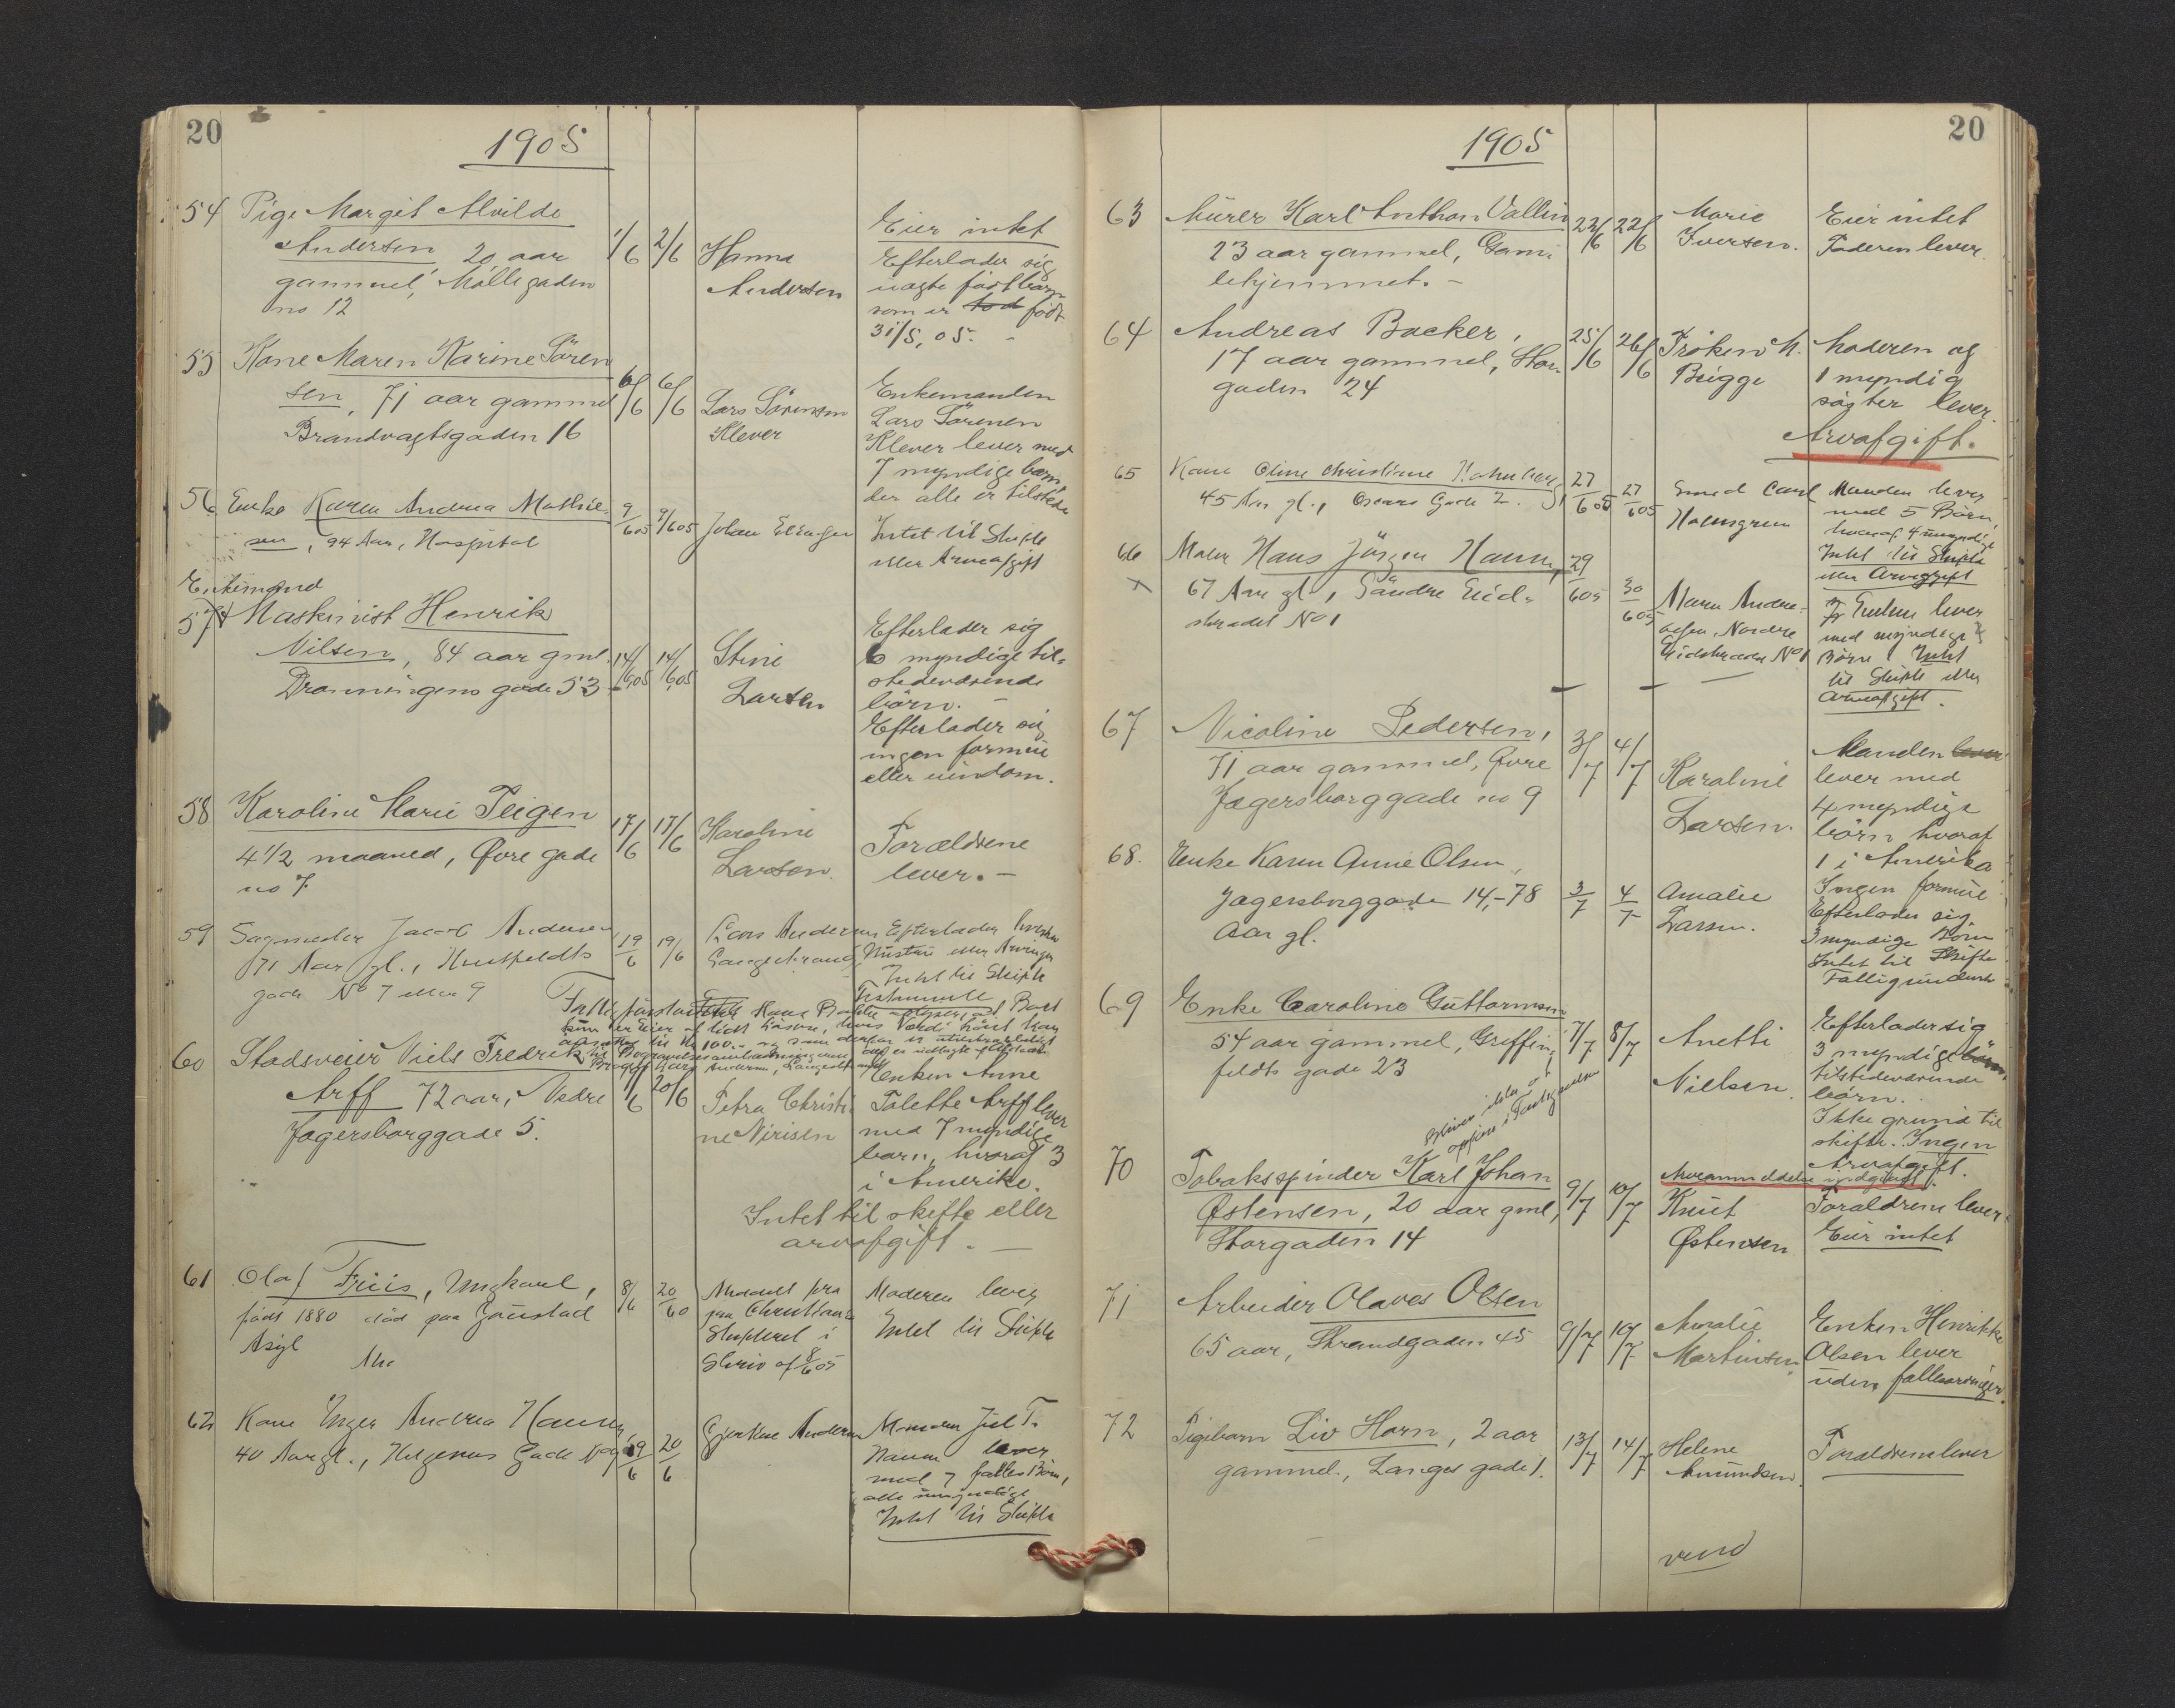 20
1905
54 Pige Margit Alvilde
Andersen, 20 aar
gammel, Möllegaden
no 12
1/6 2/6
Hanna
Andersen
Eier intet
Efterlader sig
uægte født barn
som er tod født
31/5, 05.
55 Kone Maren Karine Sören
sen, 71 aar gammel
Brandvagtsgaden 16
6/6 6/6
Lars Sörensen
Klever
Enkemanden
Lars Sörensen
Klever lever med
7 myndige børn
der alle er tilstede
56 Enke Karen Andrea Mathie-
sen, 94 Aar, Hospital
9/605 9/605
Johan Ellingsen
Intet til Skifte
eller Arveafgift
Enkemand
57 Maskinist Henrik
Nilsen, 84 aar gml.
Dronningens gade 53
14/605 14/605
Stine
Larsen
Efterlader sig
6 myndige til-
stedeværende
børn.
Efterlader sig
ingen formue
eller eiendom.
58 Karoline Marie Teigen
4 1/2 maaned, Øvre gade
no 7
17/6 17/6
Karoline
Larsen.
Forældrene
lever.
59 Sagmester Jacob Andersen
71 Aar gl., Huitfeldts
gade No 7 eller 9
19/6 19/6
Lars Andersen
Langestrand
Efterlader hverken
Hustru eller Arvinger
Intet til Skifte
Testamente
60 Stadsveier Niels Fredrik
Arff 72 aar, Nedre
Jagersborggade 5.
20/6
Petra Christi
ne Nirisen
Enken Anne
Tolette Arff lever
med 7 myndige
barn, hvoraf 3
i Amerika.
Intet til skifte eller
arvafgift.
61 Olaf Friis, Ungkarl,
født 1880 død paa Gaustad
Asyl
8/6 20/60
Anmeldt fra
Christiania
Skifteret i
Skriv af 8/605
Moderen lever
Intet til Skifte
62 Kone Inger Andrea Hansen
40 Aar gl., Helgenes Gade No
19/6 20/6
Gjertine Andersen
Manden Jul T.
Hansen lever
med 7 fælles Børn,
alle umyndige
Intet til Skifte
20
1905
63 Murer Karl Anthon Vallin
23 aar gammel, Gam-
lehjemmet.
22/6 22/6
Marie
Iversen.
Eier intet
Faderen lever.
64 Andreas Backer,
17 aar gammel, Stor-
gaden 24
25/6 26/6
Frøken M.
Brigge
Moderen og
1 myndig
søster lever.
Arvafgift.
65 Kone Oline Christiane Holmberg
45 Aar gl., Oscars Gade 2.
27/605 27/605
Smed Carl
Holmgren
Manden lever
med 5 Børn,
hvoraf 4 umyndige
Intet til Skifte
eller Arvegift
66 Maler Hans Jörgen Hansen,
67 Aar gl., Söndre Eid-
stradet No 1
29/605 30/605
Maren Andre-
asen, Nordre
Eidstrædet No 1
Enken lever
med myndige
Børn Intet
til Skifte eller
Arveafgift.
67 Nicoline Pedersen,
71 aar gammel, Øvre
Jagersborggade no 9
3/7 4/7
Karoline
Larsen.
Manden lever
lever med
4 myndige
börn hvoraf
1 i Amerika
Ingen formue
68. Enke Karen Anne Olsen,
Jagersborggade 14, - 78
Aar gl.
3/7 4/7
Amalie
Larsen.
Efterlader sig
3 myndige Børn
Intet til Skifte
Fattigunderst
69 Enke Caroline Guttormsen
54 aar gammel, Griffen-
feldts gade 23
7/7 8/7
Anetti
Nielsen.
Efterlader sig
3 myndige børn
tilstedeværende
børn.
Ikke grund til
skifte. Ingen
Arvafgift.
70 Tobaksspinder Karl Johan
Østensen, 20 aar gml,
Storgaden 14
9/7 10/7
Knut
Østensen
Forældrene lever.
Eier intet
71 Arbeider Olaves Olsen
65 aar, Strandgaden 45
9/7 10/7
Amalie
Martinsen
Enken Henrikke
Olsen lever
uden fællesarvinger.
72 Pigebarn Liv Horn, 2 aar
gammel., Langes gade 1.
13/7 14/7
Helene
Amundsen.
Forældrene lever
vend